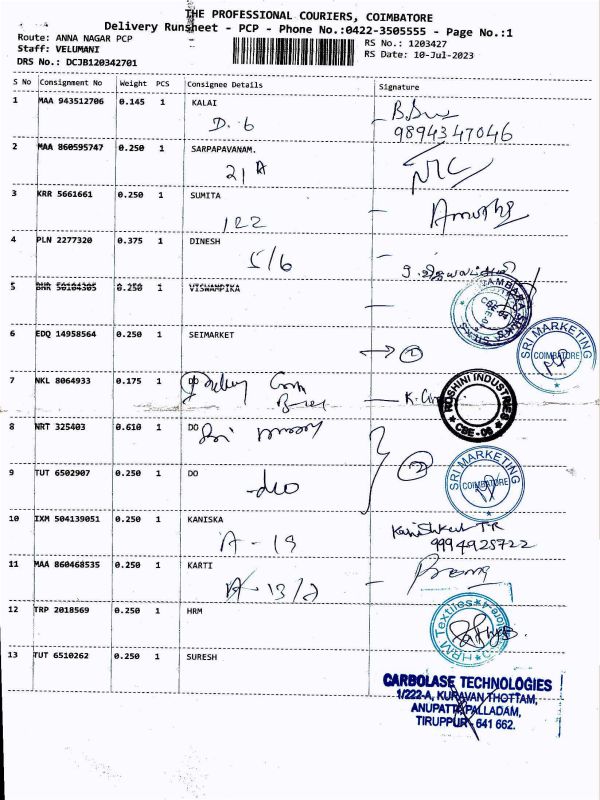 THE PROFESSIONAL COURIERS, COIMBATORE
Delivery Runsheet - PCP - Phone No.:0422-3505555 - Page No.:1
Route: ANNA NAGAR PCP
Staff: VELUMANI
DRS No.: DCJB120342701
RS No.: 1203427
RS Date: 10-Jul-2023
S No Consignment No Weight PCS Consignee Details Signature
1 MAA 943512706 0.145 1 KALAI
D. 6
9894347046
2 MAA 860595747 0.250 1 SARPAPAVANAM.
21 A
3 KRR 5661661 0.250 1 SUMITA
122
4 PLN 2277320 0.375 1 DINESH
5/6
5 BHR 50104305 0.250 1 VISWAMPIKA
CBE-04
6 EDQ 14958564 0.250 1 SEIMARKET
SRI MARKETING
COIMBATORE
7 NKL 8064933 0.175 1 DO
ROSHINI INDUSTRIES
CBE-06
8 NRT 325403 0.610 1 DO
9 TUT 6502907 0.250 1 DO
-do
2
SRI MARKETING
COIMBATORE
10 IXM 504139051 0.250 1 KANISKA
A - 19
9994928722
11 MAA 860468535 0.250 1 KARTI
A - 13/2
12 TRP 2018569 0.250 1 HRM
HRM Textiles
13 TUT 6510262 0.250 1 SURESH
CARBOLASE TECHNOLOGIES
1/222-A, KURAVAN THOTTAM,
ANUPATTAPALLADAM,
TIRUPPUR - 641 662.